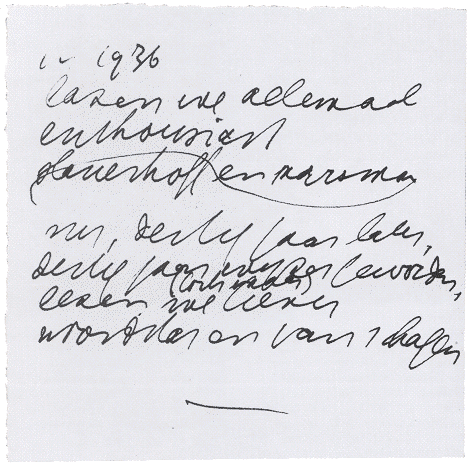 in 1936
lazen we allemaal
enthousiast
slauerhoff en marsman
nu, dertig jaar later,
dertig jaar geworden,
lezen we liever
en van schagen